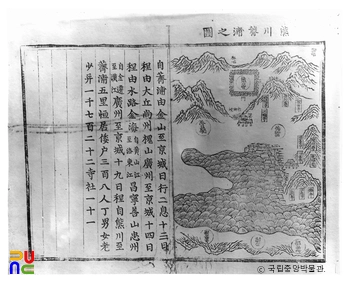 熊川薺浦之圖
自薺浦由金山至京城日行三息十三日
程由大丘尚州槐山廣州至京城十四日
程由水路金海自黃山江至洛東江昌寧善山忠州
自金遷至漢江廣州至京城十九日程自熊川至
薺浦五里恒居倭戶三百八人丁男女老
少并一千七百二十二寺社一十一
© 국립중앙박물관